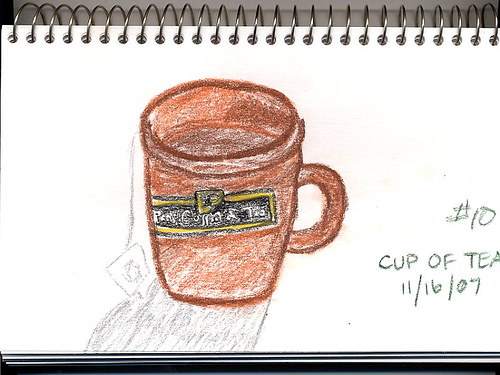 Coffee & Tea
#10
CUP OF TEA
11/16/07